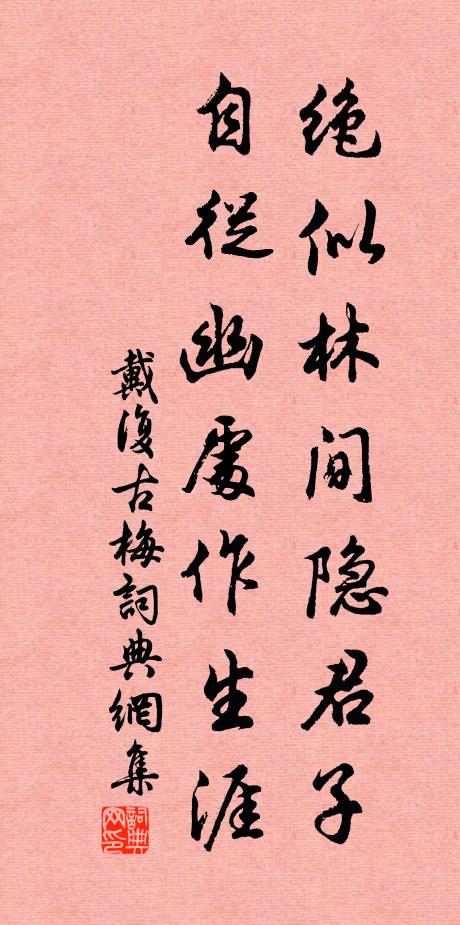 绝似林间隐君子
自從幽處作生涯
戴復古梅詞典網集
詞典网印